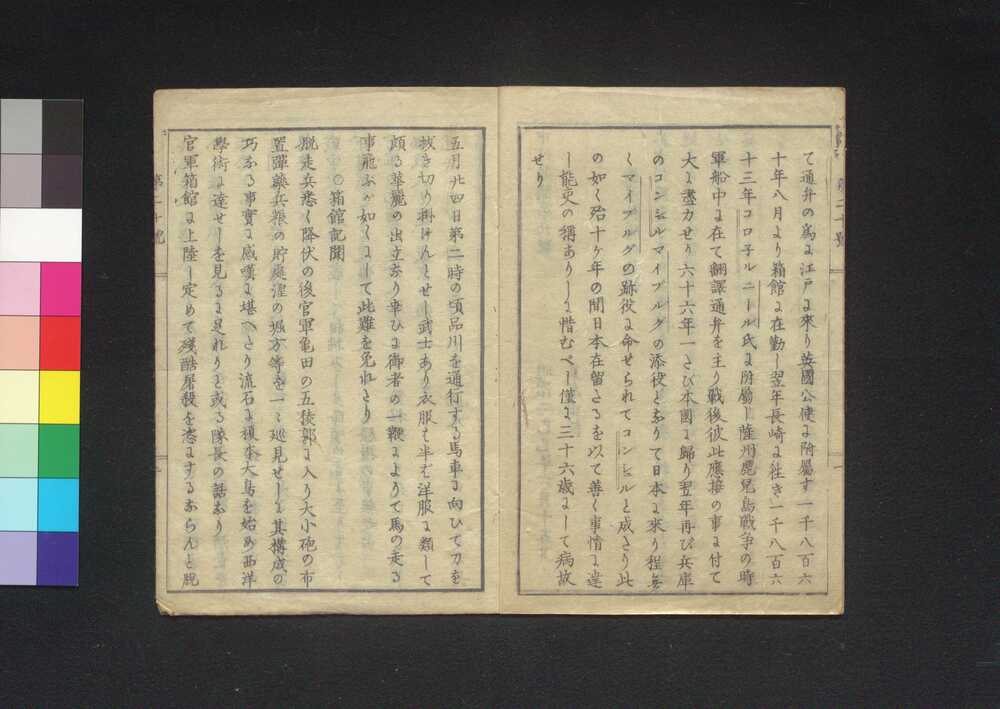 て通弁の為に江戸に來り英國公使に附屬す一千八百六
十年八月より箱館に在勤し翌年長崎に徃き一千八百六
十三年コロ子ルニール氏に附屬し薩州鹿児島戦争の時
軍船中に在て翻譯通弁を主り戦後彼此應接の事に付て
大に盡力せり六十六年一たび本國に歸り翌年再び兵庫
のコンシュルマイブルグの添役となりて日本に來り程無
くマイブルグの跡役に命せられてコンシュルと成たり此
の如く殆十ケ年の間日本在留たるを以て善く事情に達
し能吏の稱ありしに惜むべし僅に三十六歳にして病故
せり
五月廿四日第二時の頃品川を通行する馬車に向ひて刀を
抜き切り掛けんとせし武士あり衣服も半ば洋服に類して
頗る華麗の出立なり幸ひに御者の一鞭によりて馬の走る
事飛ぶが如くにして此難を免れたり
○箱館記聞
脱走兵悉く降伏の後官軍亀田の五稜郭に入り大小砲の布
置彈藥兵粮の貯處湟の堀方等を一々巡見せしに其構成の
巧なる事實に感嘆に堪へたり流石に榎本大鳥を始め西洋
學術に達せしを見るに足れりと或る隊長の話なり
官軍箱館に上陸し定めて残酷屠殺を恣にするならんと脱
第二十號